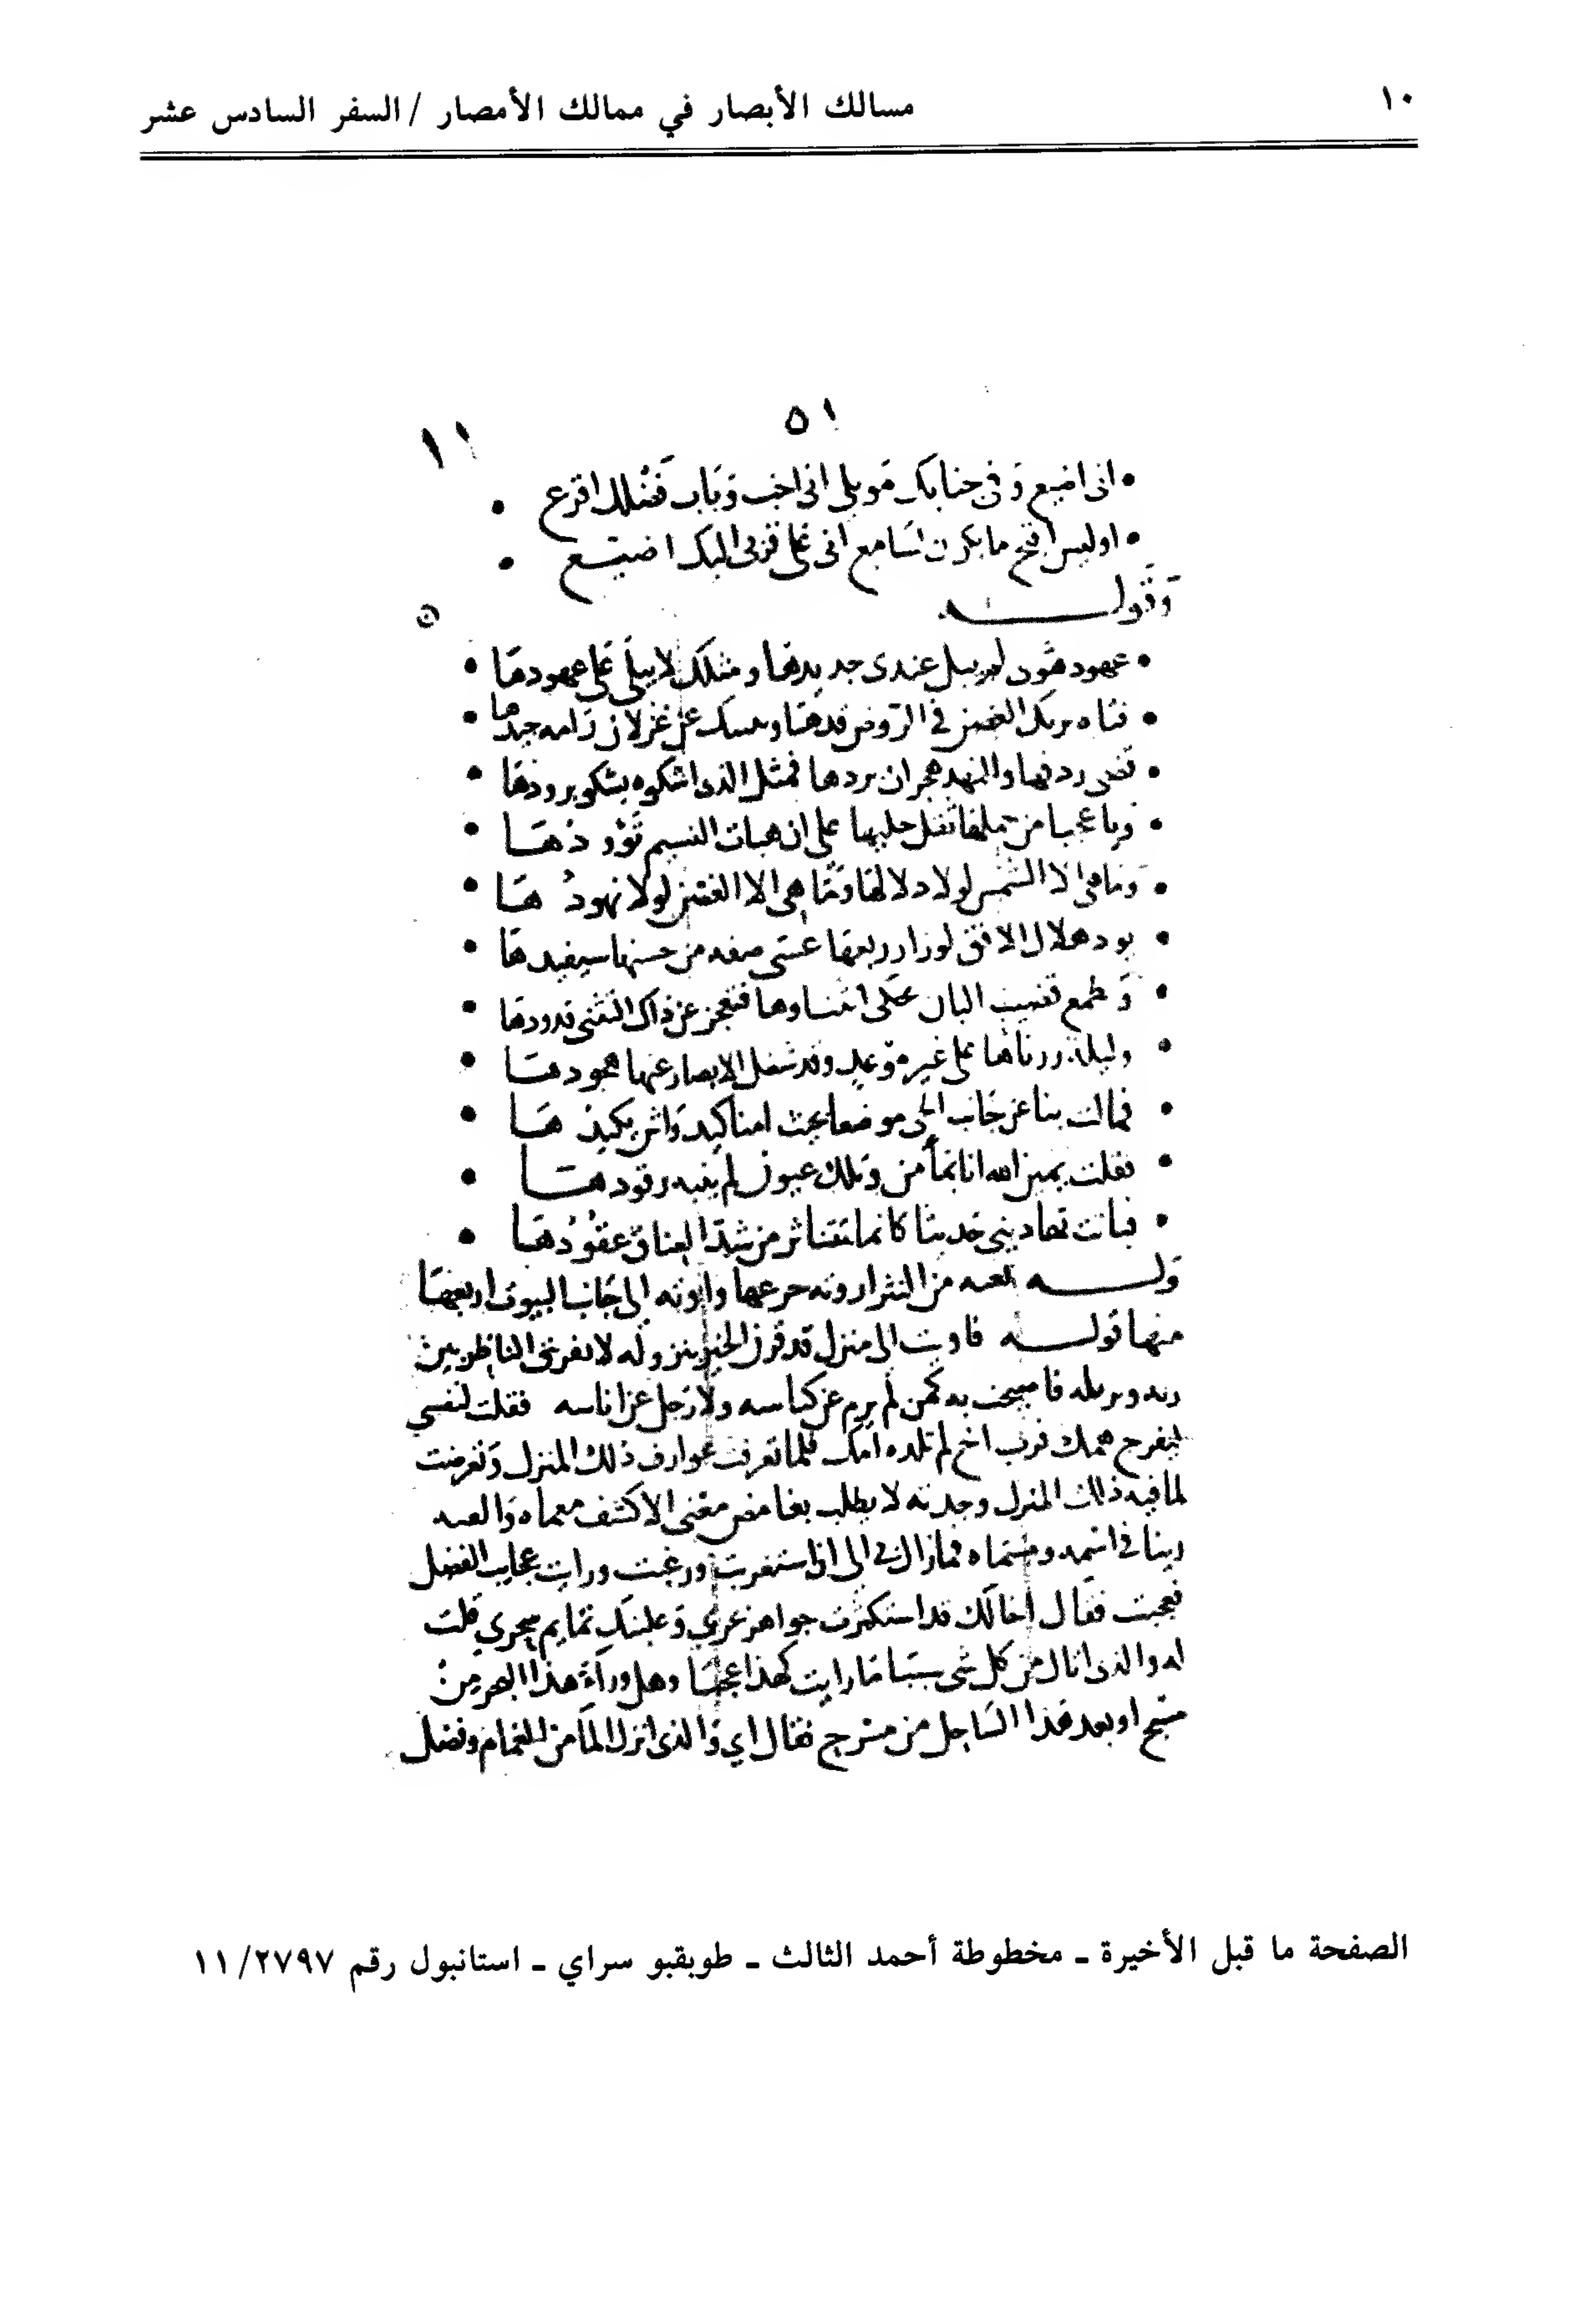 ١٠
مسالك الأبصار في ممالك الأمصار / السفر السادس عشر
١٥
١١
• انى اضيع وفى جنابك موىلى انى اخىب وباب فضلك اقرع •
• اوليس اقبح ما يكون لسامع انى على قربى اليك اضيع •
وقوله
• عهود هوى لم يبل عندى جديدها ومثلك لا يبلى على عهودها •
• فتاه يريك الغصن فى الروض قدها وينبيك عن غزلان رامه جيدها •
• قضى ردفها والنهد هجران بردها فمثل الذى اشكوه يشكو برودها •
• ويا عجبا من حملها ثقل حليها على ان هبات النسيم تؤودها •
• وما هى الا الشمس لولا دلالها وما هى الا الغصن لولا نهودها •
• يود هلال الافق لو زار ربعها عسى صفه من حسنها يستفيدها •
• وتطمع قضب البان تحكى انثناوها فتعجز عن ذاك التثنى قدودها •
• وليله زرناها على غير موعد وقد شغل الابصار عنها هجودها •
• فمالت بنا عن جانب الحى موضعا بحيث امنا كيد واش يكيدها •
• فقلت يمين الله انا بمأمن وتلك عيون لم ينبه رقودها •
• فباتت تهادينى حديثا كانما تتناثر من شد العناق عقودها •
وله من النثر الى جانب البيوت اربعها
منها قوله فاويت الى منزل قد قرن الخير بنزوله لا يفرق الناظر بين
فاصبحت به كمن لم يرم عن كناسه ولا رحل عن اناسه فقلت لنفسي
ليفرح همك فرب اخ لم تلده امك فلما تعرفت عوارف ذلك المنزل وتعرضت
لما فيه ذلك المنزل وجدته لا يطلب بغامض معنى الا كشف معماه
فى اسمه ومسماه فما زال بى الى ان استغربت ورغبت ورايت عجايب الفضل
فعجبت فقال اخالك قد استكثرت جواهر نحري وعلتك تمايم سحري قلت
له والذى انال من كل شى سببا ما رايت كهذا عجبا وهل وراء هذا البحر من
مسبح او بعد هذا الساحل من مسرح فقال اي والذى انزل الما من الغمام وفضل
الصفحة ما قبل الأخيرة ـ مخطوطة أحمد الثالث ـ طوبقبو سراي ـ استانبول رقم ١١/٢٧٩٧